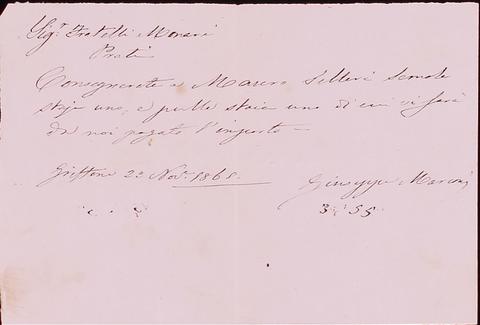 Sig.r Fratelli Monari
Prati
Consegnerete a Marero Selleri Semole
staje uno, e pulle staia uno di cui vi sarà
da noi pagato l'importo —
Griffone 2 Nov. 1868.
Giuseppe Marconi
3:55